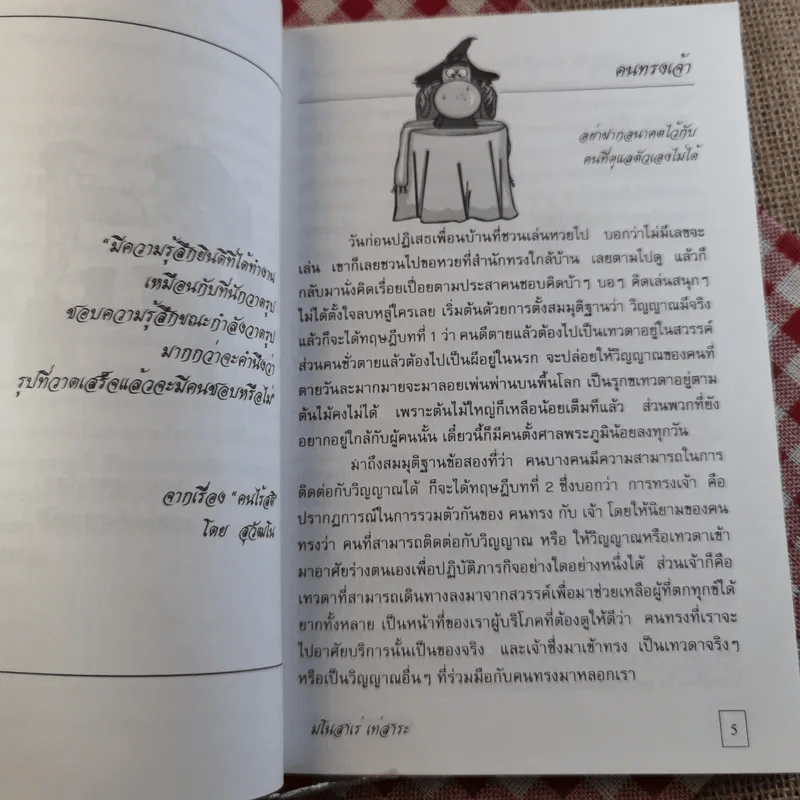 "มีความรู้สึกยินดีที่ได้ทำงาน
เหมือนกับที่นักวาดรูป
ชอบความรู้สึกขณะกำลังวาดรูป
มากกว่าจะคำนึงว่า
รูปที่วาดเสร็จแล้วจะมีคนชอบหรือไม่"
จากเรื่อง "คนไร้สติ
โดย สุวัฒโน
คนทรงเจ้า
อย่าฝากอนาคตไว้กับ
คนที่ดูแลตัวเองไม่ได้
วันก่อนปฏิเสธเพื่อนบ้านที่ชวนเล่นหวยไป บอกว่าไม่มีเลขจะ
เล่น เขาก็เลยชวนไปขอหวยที่สำนักทรงใกล้บ้าน เลยตามไปดู แล้วก็
กลับมานั่งคิดเรื่อยเปื่อยตามประสาคนชอบคิดบ้าๆ บอๆ คิดเล่นสนุกๆ
ไม่ได้ตั้งใจลบหลู่ใครเลย เริ่มต้นด้วยการตั้งสมมุติฐานว่า วิญญาณมีจริง
แล้วก็จะได้ทฤษฎีบทที่ 1 ว่า คนดีตายแล้วต้องไปเป็นเทวดาอยู่ในสวรรค์
ส่วนคนชั่วตายแล้วต้องไปเป็นผีอยู่ในนรก จะปล่อยให้วิญญาณของคนที่
ตายวันละมากมายจะมาลอยเพ่นพ่านบนพื้นโลก เป็นรุกขเทวดาอยู่ตาม
ต้นไม้คงไม่ได้ เพราะต้นไม้ใหญ่ก็เหลือน้อยเต็มทีแล้ว ส่วนพวกที่ยัง
อยากอยู่ใกล้กับผู้คนนั้น เดี๋ยวนี้ก็มีคนตั้งศาลพระภูมิน้อยลงทุกวัน
มาถึงสมมุติฐานข้อสองที่ว่า คนบางคนมีความสามารถในการ
ติดต่อกับวิญญาณได้ ก็จะได้ทฤษฎีบทที่ 2 ซึ่งบอกว่า การทรงเจ้า คือ
ปรากฏการณ์ในการรวมตัวกันของ คนทรง กับ เจ้า โดยให้นิยามของคน
ทรงว่า คนที่สามารถติดต่อกับวิญญาณ หรือ ให้วิญญาณหรือเทวดาเข้า
มาอาศัยร่างตนเองเพื่อปฏิบัติภารกิจอย่างใดอย่างหนึ่งได้ ส่วนเจ้าก็คือ
เทวดาที่สามารถเดินทางลงมาจากสวรรค์เพื่อมาช่วยเหลือผู้ที่ตกทุกข์ได้
ยากทั้งหลาย เป็นหน้าที่ของเราผู้บริโภคที่ต้องดูให้ดีว่า คนทรงที่เราจะ
ไปอาศัยบริการนั้นเป็นของจริง และเจ้าซึ่งมาเข้าทรง เป็นเทวดาจริงๆ
หรือเป็นวิญญาณอื่นๆ ที่ร่วมมือกับคนทรงมาหลอกเรา
มโนสาเร่ เท่สาระ
5